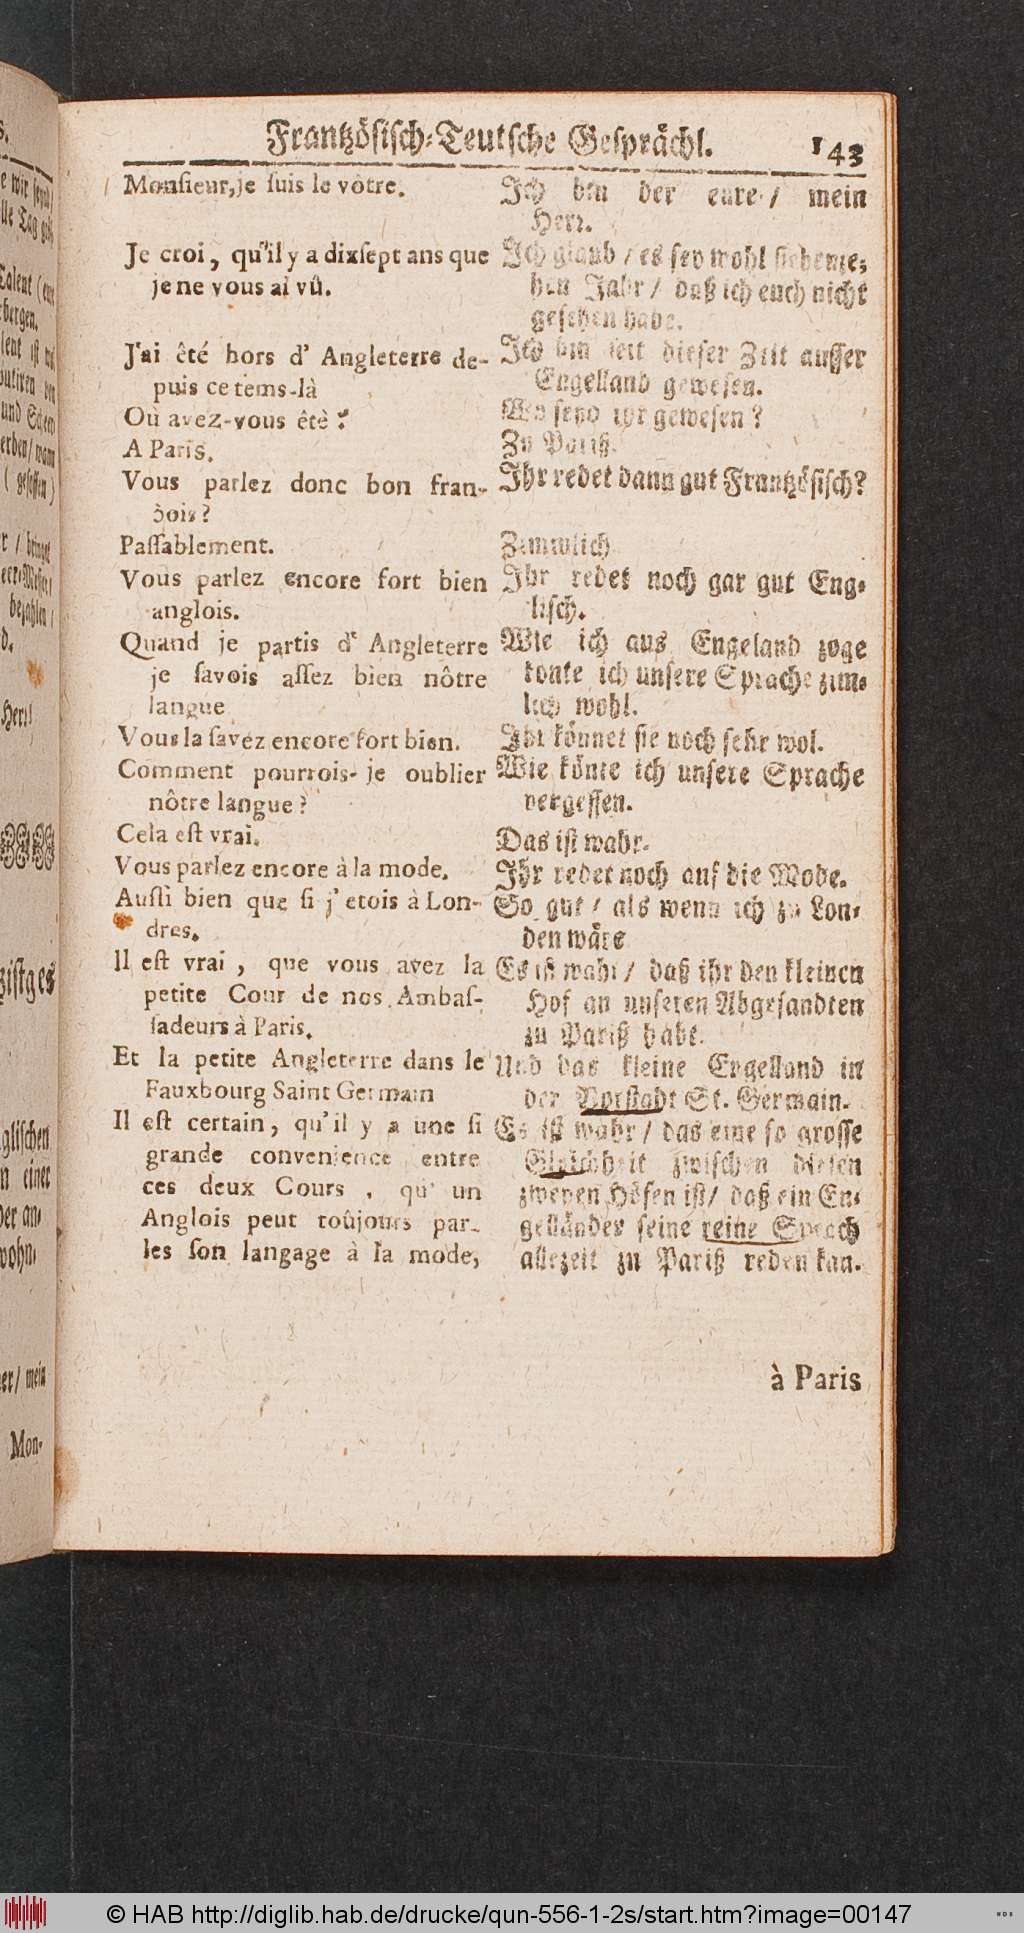 Frantzösisch-Teutsche Gesprächl. 143
Monſieur, je ſuis le vôtre.
Je croi, qu'il y a dixſept ans que
je ne vous ai vû.
J'ai êté hors d' Angleterre de-
puis ce tems-là
Où avez-vous êtè ?
A Paris.
Vous parlez donc bon fran-
çois?
Paſſablement.
Vous parlez encore fort bien
anglois.
Quand je partis d' Angleterre
je ſavois aſſez bien nôtre
langue
Vous la ſavez encore fort bien.
Comment pourrois-je oublier
nôtre langue?
Cela eſt vrai.
Vous parlez encore à la mode.
Auſſi bien que ſi j' etois à Lon-
dres.
Il eſt vrai, que vous avez la
petite Cour de nos Ambaſ-
ſadeurs à Paris.
Et la petite Angleterre dans le
Fauxbourg Saint Germain
Il eſt certain, qu'il y a une ſi
grande convenience entre
ces deux Cours, qu' un
Anglois peut toûjours par-
les ſon langage à la mode,
Ich bin der eure / mein
Herr.
Ich glaub / es sey wohl siebenze-
hen Jahr / daß ich euch nicht
gesehen habe.
Ich bin seit dieser Zeit ausser
Engelland gewesen.
Wo seyd ihr gewesen?
Zu Pariß.
Ihr redet dann gut Frantzösisch?
Zimmlich
Ihr redet noch gar gut Eng-
lisch.
Wie ich aus Engeland zoge
konte ich unsere Sprache zim-
lich wohl.
Ihr könnet sie noch sehr wol.
Wie könte ich unsere Sprache
vergessen.
Das ist wahr.
Ihr redet noch auf die Mode.
So gut / als wenn ich zu Lon-
den wäre
Es ist wahr / daß ihr den kleinen
Hof an unseren Abgesandten
zu Pariß habt.
Und das kleine Engelland in
der Vorstadt St. Germain.
Es ist wahr / das eine so grosse
Gleichheit zwischen diesen
zweyen Höfen ist / daß ein En-
gelländer seine reine Sprach
allezeit zu Pariß reden kan.
à Paris
Mon-
© HAB http://diglib.hab.de/drucke/qun-556-1-2s/start.htm?image=00147